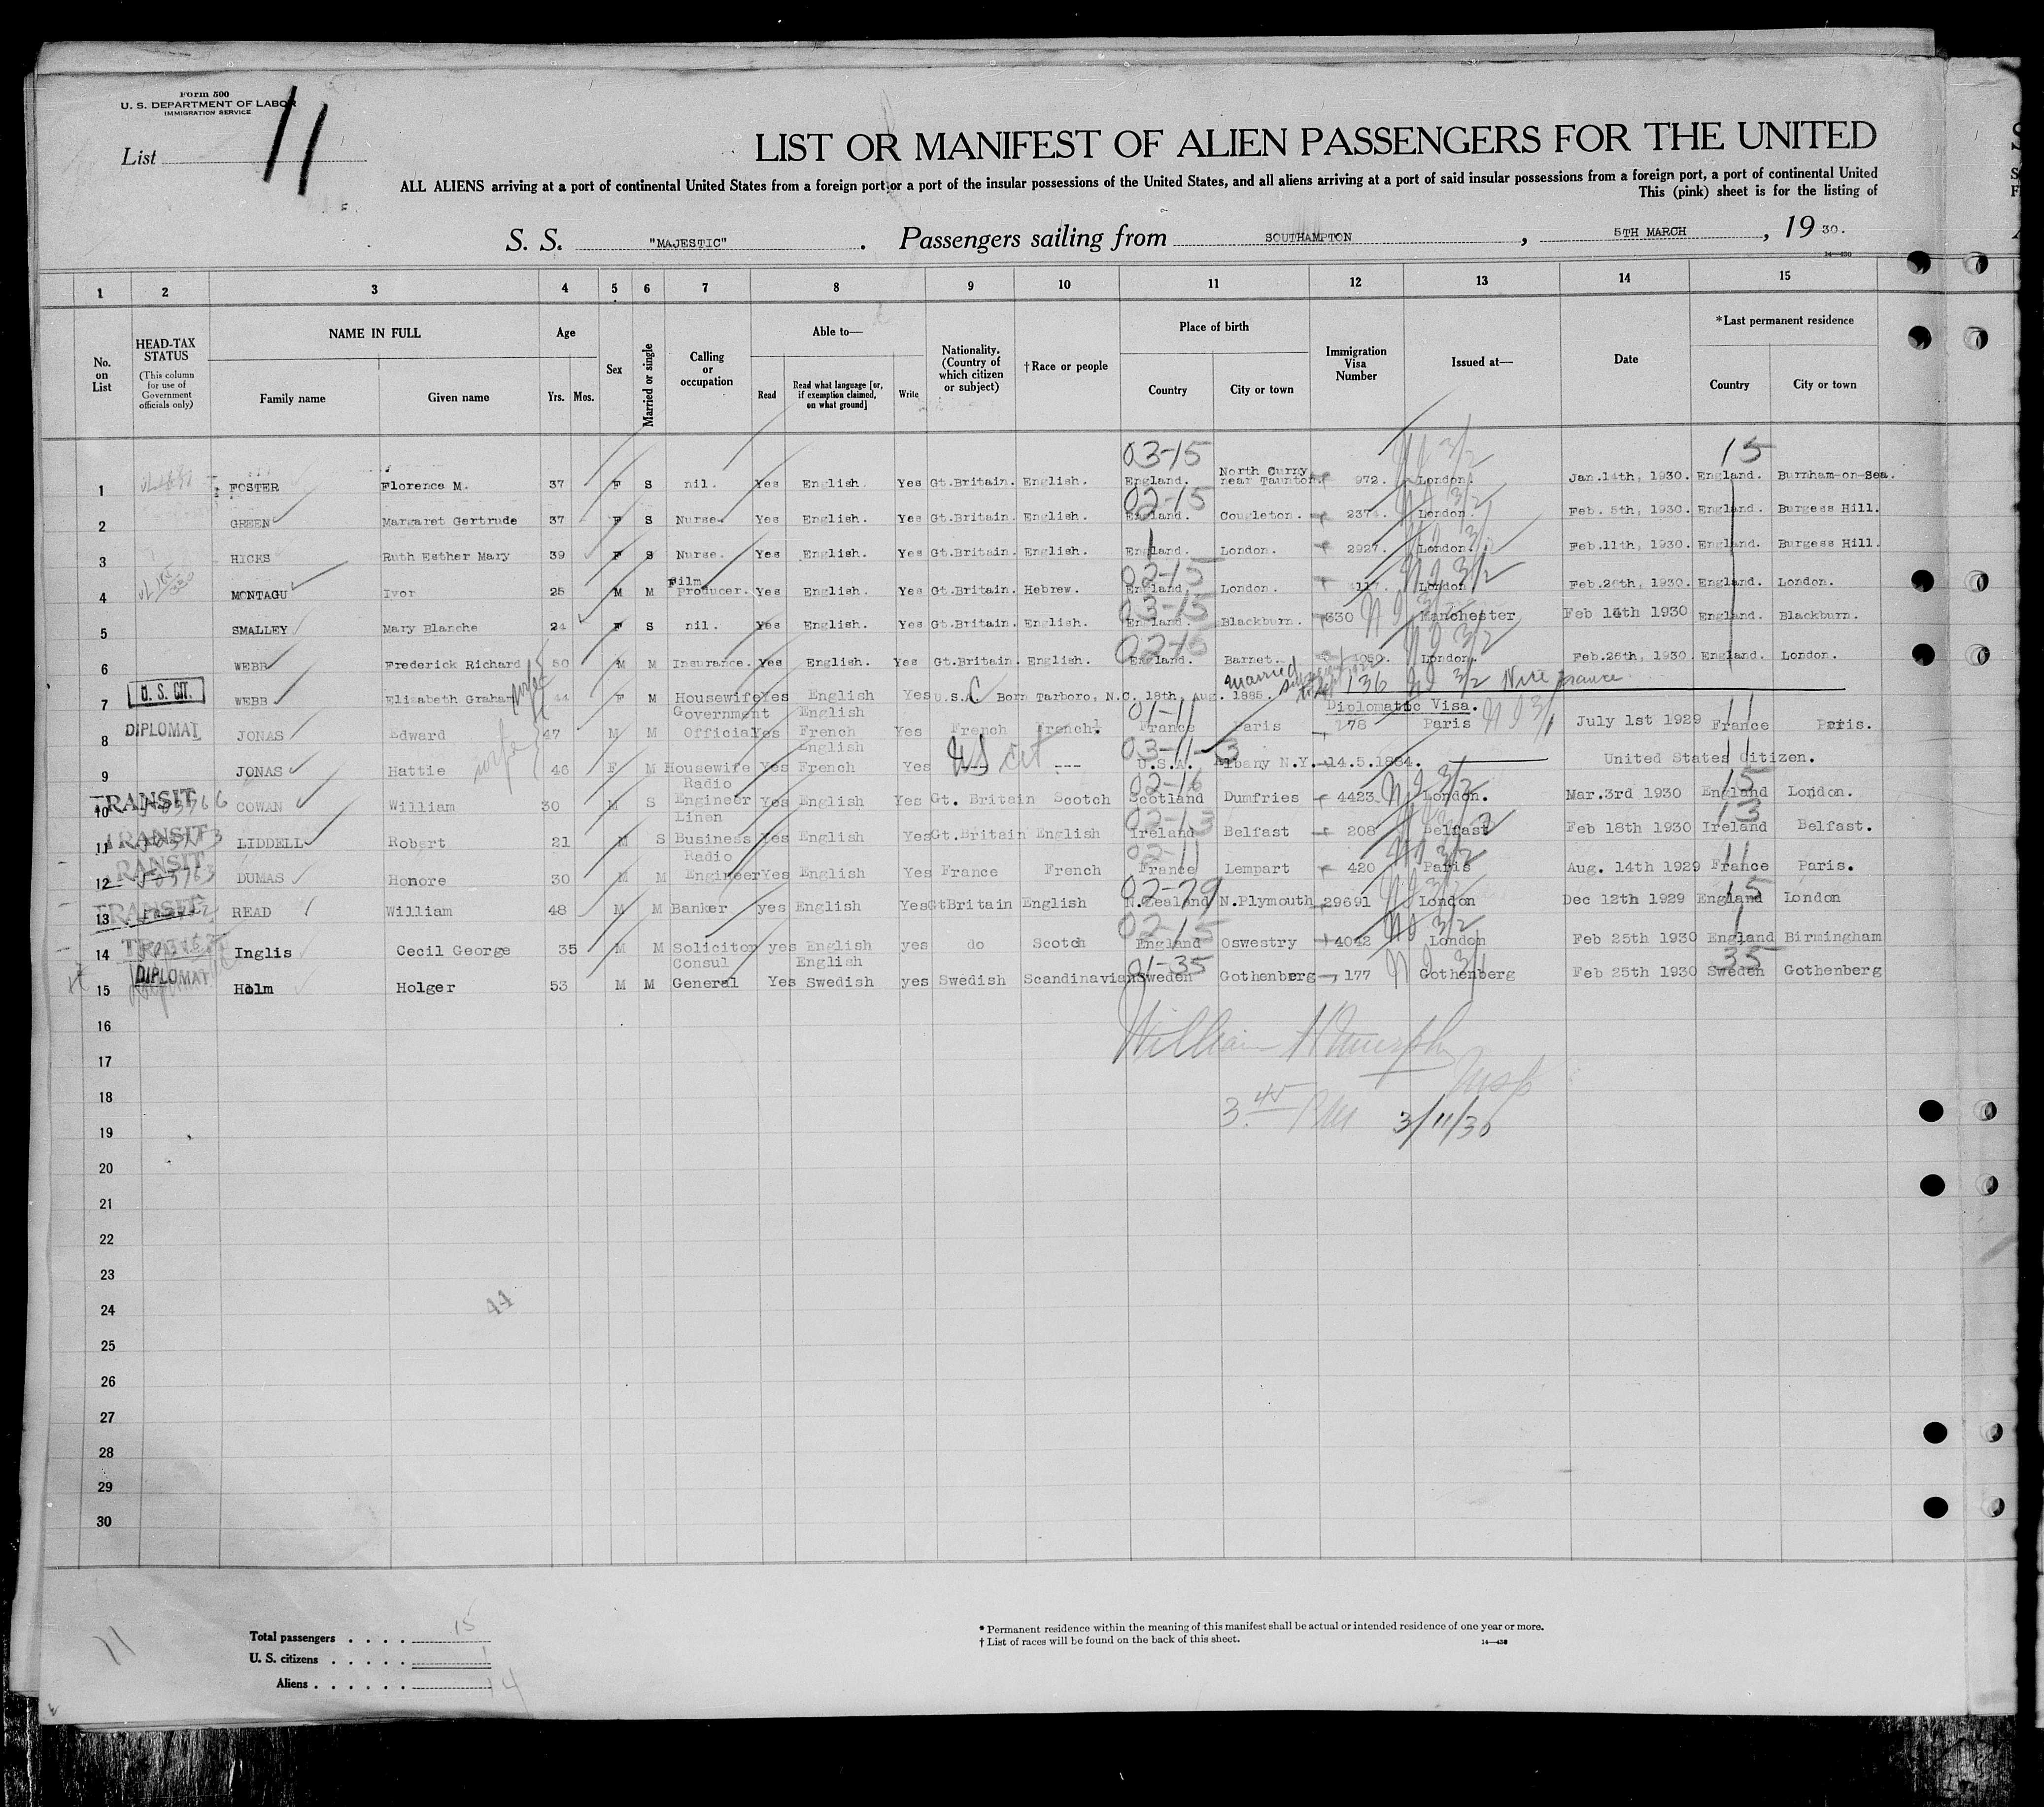 Form 500
U. S. DEPARTMENT OF LABOR
IMMIGRATION SERVICE
List 11
LIST OR MANIFEST OF ALIEN PASSENGERS FOR THE UNITED
ALL ALIENS arriving at a port of continental United States from a foreign port or a port of the insular possessions of the United States, and all aliens arriving at a port of said insular possessions from a foreign port, a port of continental United
This (pink) sheet is for the listing of
S. S. "MAJESTIC" . Passengers sailing from SOUTHAMPTON , 5TH MARCH , 19 30.
1 2 3 4 5 6 7 8 9 10 11 12 13 14 15
No. on List
HEAD-TAX STATUS (This column for use of Government officials only)
NAME IN FULL Family name Given name
Age Yrs. Mos.
Sex
Married or single
Calling or occupation
Able to— Read Read what language [or, if exemption claimed, on what ground] Write
Nationality. (Country of which citizen or subject)
†Race or people
Place of birth Country City or town
Immigration Visa Number
Issued at—
Date
*Last permanent residence Country City or town
03-15 15
1 FOSTER Florence M. 37 F S nil. Yes English. Yes Gt.Britain. English. England. North Curry near Taunton. 972. London. Jan.14th, 1930. England. Burnham-on-Sea.
02-15
2 GREEN Margaret Gertrude 37 F S Nurse. Yes English. Yes Gt.Britain. English. England. Congleton. 237. London. Feb. 5th, 1930. England. Burgess Hill.
3 HICKS Ruth Esther Mary 39 F S Nurse. Yes English. Yes Gt.Britain. English. England. London. 2927. London. Feb.11th, 1930. England. Burgess Hill.
02-15
4 MONTAGU Ivor 25 M M Film Producer. Yes English. Yes Gt.Britain. Hebrew. England. London. 4117. London Feb.26th, 1930. England. London.
03-15
5 SMALLEY Mary Blanche 24 F S nil. Yes English. Yes Gt.Britain. English. England. Blackburn. 330 Manchester Feb 14th 1930 England. Blackburn.
02-15
6 WEBB Frederick Richard 50 M M Insurance. Yes English. Yes Gt.Britain. English. England. Barnet. London. Feb.26th, 1930. England. London.
7 U. S. CIT. WEBB Elisabeth Graham wife 44 F M Housewife Yes English Yes U.S.A. Born Tarboro, N.C. 18th, Aug. 1885. married 136 Nice France
Diplomatic Visa.
01-11 11
8 DIPLOMAT JONAS Edward 47 M M Government Official Yes English French Yes French French France Paris 278 Paris July 1st 1929 France Paris.
03-11-3
9 JONAS Hattie wife 46 F M Housewife Yes English French Yes US Cit --- U.S.A. Albany N.Y. 14.5.1884. United States Citizen.
02-16 15
10 TRANSIT COWAN William 30 M S Radio Engineer Yes English Yes Gt. Britain Scotch Scotland Dumfries 4423 London. Mar.3rd 1930 England London.
02-13 13
11 TRANSIT LIDDELL Robert 21 M S Linen Business Yes English Yes Gt.Britain English Ireland Belfast 208 Belfast Feb 18th 1930 Ireland Belfast.
02-11 11
12 TRANSIT DUMAS Honore 30 M M Radio Engineer Yes English Yes France French France Lempart 420 Paris Aug. 14th 1929 France Paris.
02-29 15
13 TRANSIT READ William 48 M M Banker yes English Yes GtBritain English N.Zealand N.Plymouth 29691 London Dec 12th 1929 England London
02-15
14 TRANSIT Inglis Cecil George 35 M M Solicitor yes English yes do Scotch England Oswestry 4042 London Feb 25th 1930 England Birmingham
01-35 35
15 DIPLOMAT Holm Holger 53 M M Consul General Yes English Swedish yes Swedish Scandinavian Sweden Gothenberg 177 Gothenberg Feb 25th 1930 Sweden Gothenberg
16
William H Murphy
17
Insp
18
3.45 PM 3/11/30
19
20
21
22
23
24
44
25
26
27
28
29
30
11
Total passengers . . . . 15
U. S. citizens . . . . . 1
Aliens . . . . . . 14
* Permanent residence within the meaning of this manifest shall be actual or intended residence of one year or more.
† List of races will be found on the back of this sheet.